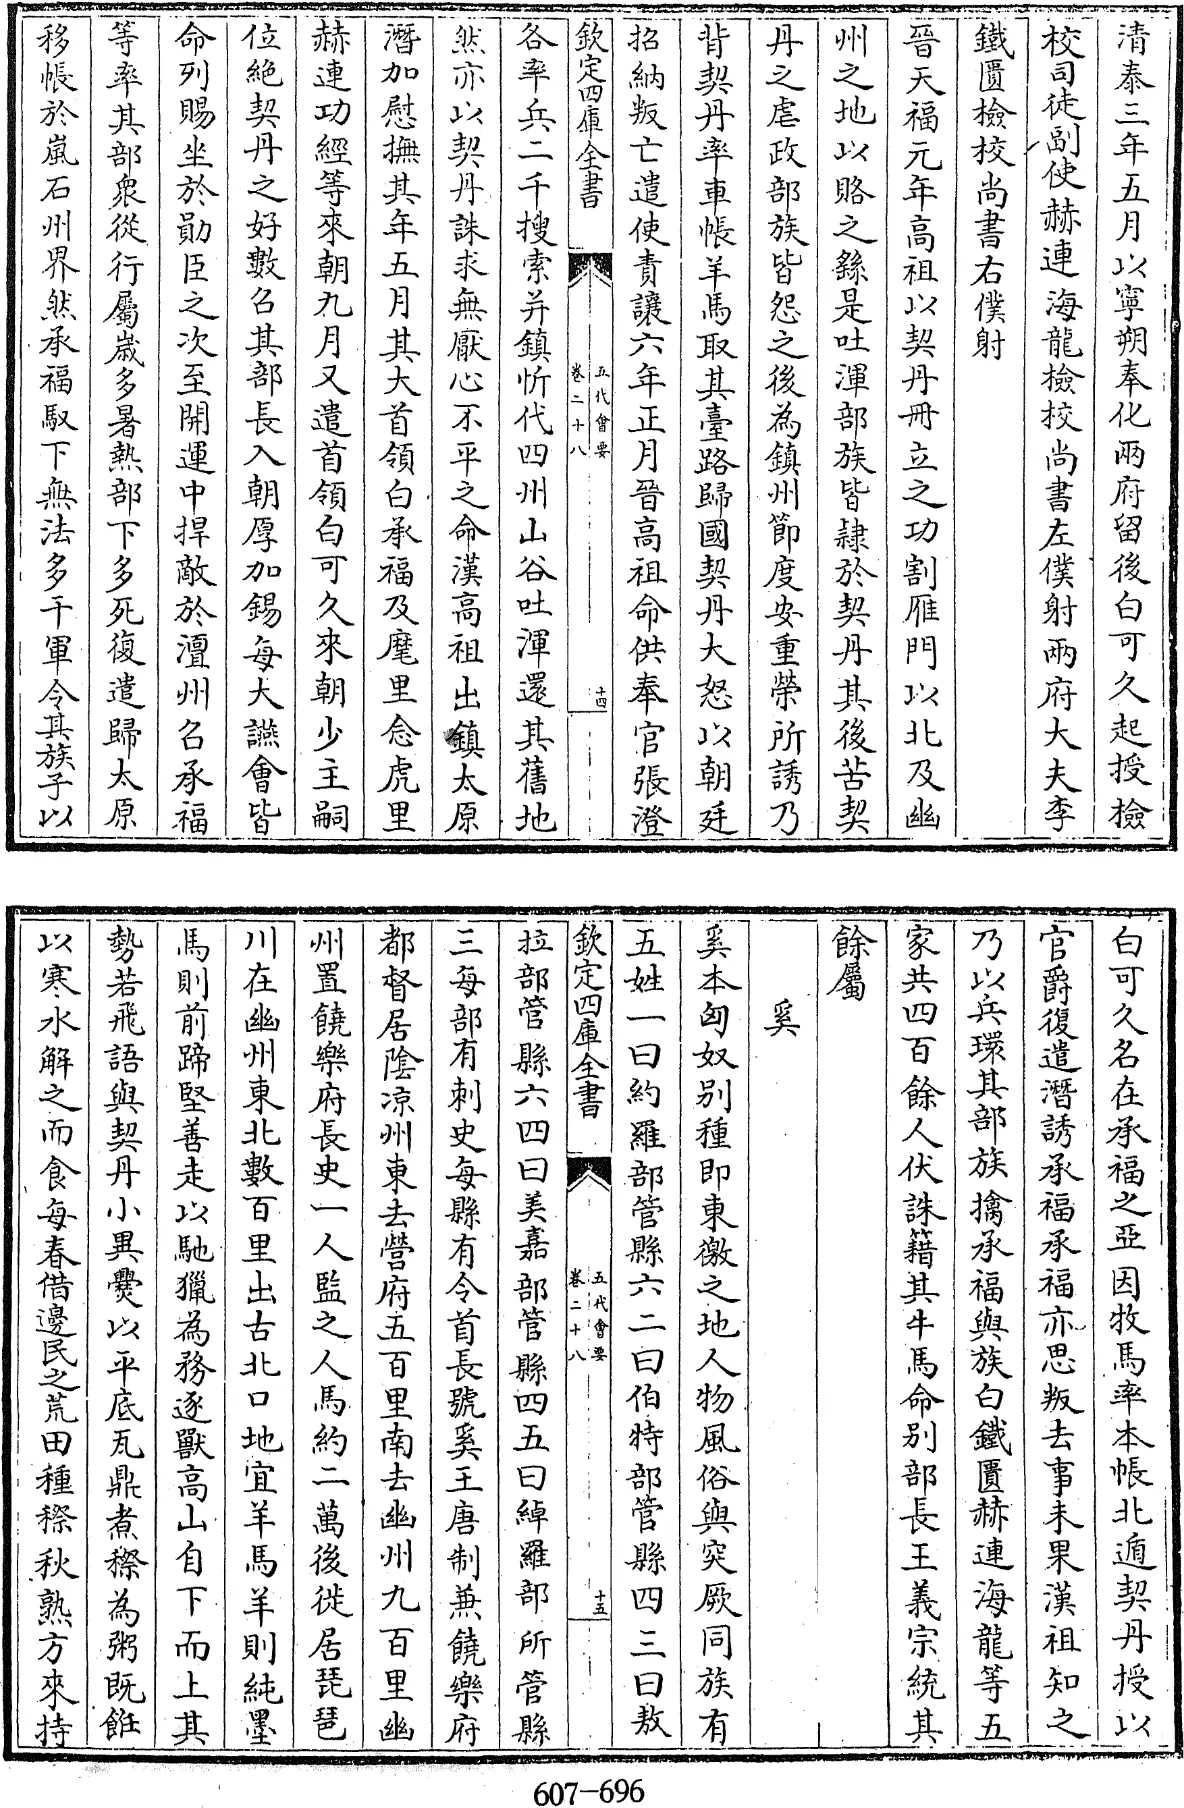 清泰三年五月以寧朔奉化兩府留後白可久起授檢
校司徒副使赫連海龍檢校尚書左僕射兩府大夫李
鐵匱檢校尚書右僕射
晉天福元年高祖以契丹冊立之功割雁門以北及幽
州之地以賂之繇是吐渾部族皆隷於契丹其後苦契
丹之虐政部族皆怨之後為鎮州節度安重榮所誘乃
背契丹率車帳羊馬取其臺路歸國契丹大怒以朝廷
招納叛亡遣使責讓六年正月晉高祖命供奉官張澄
欽定四庫全書
五代會要
卷二十八
十四
各率兵二千搜索并鎮忻代四州山谷吐渾還其舊地
然亦以契丹誅求無厭心不平之命漢高祖出鎮太原
潛加慰撫其年五月其大首領白承福及麾里念虎里
赫連功經等來朝九月又遣首領白可久來朝少主嗣
位絕契丹之好數召其部長入朝厚加錫每大讌會皆
命列賜坐於勛臣之次至開運中捍敵於澶州召承福
等率其部衆從行屬歲多暑熱部下多死復遣歸太原
移帳於嵐石州界然承福馭下無法多干軍令其族子以
白可久名在承福之亞因牧馬率本帳北遁契丹授以
官爵復遣潛誘承福承福亦思叛去事未果漢祖知之
乃以兵環其部族擒承福與族白鐵匱赫連海龍等五
家共四百餘人伏誅籍其牛馬命別部長王義宗統其
餘屬
奚
奚本匈奴別種即東徼之地人物風俗與突厥同族有
五姓一曰約羅部管縣六二曰伯特部管縣四三曰敖
欽定四庫全書
五代會要
卷二十八
十五
拉部管縣六四曰美嘉部管縣四五曰綽羅部所管縣
三每部有刺史每縣有令首長號奚王唐制兼饒樂府
都督居陰凉州東去營府五百里南去幽州九百里幽
州置饒樂府長史一人監之人馬約二萬後徙居琵琶
川在幽州東北數百里出古北口地宜羊馬羊則純墨
馬則前蹄堅善走以馳獵為務逐獸高山自下而上其
勢若飛語與契丹小異爨以平底瓦鼎煮穄為粥既飪
以寒水解之而食每春借邊民之荒田種穄秋熟方來持
607-696